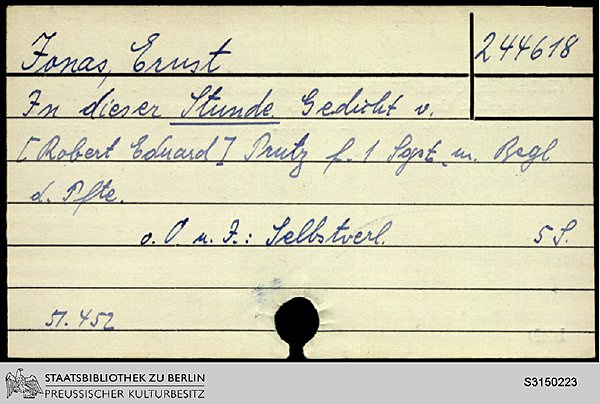 Jonas, Ernst
244618
In dieser Stunde. Gedicht v.
[Robert Eduard] Prutz f. 1 Sgst. m. Begl
d. Pfte.
o. O. u. J.: Selbstverl. 5 S.
51. 452
STAATSBIBLIOTHEK ZU BERLIN
PREUSSISCHER KULTURBESITZ
S3150223